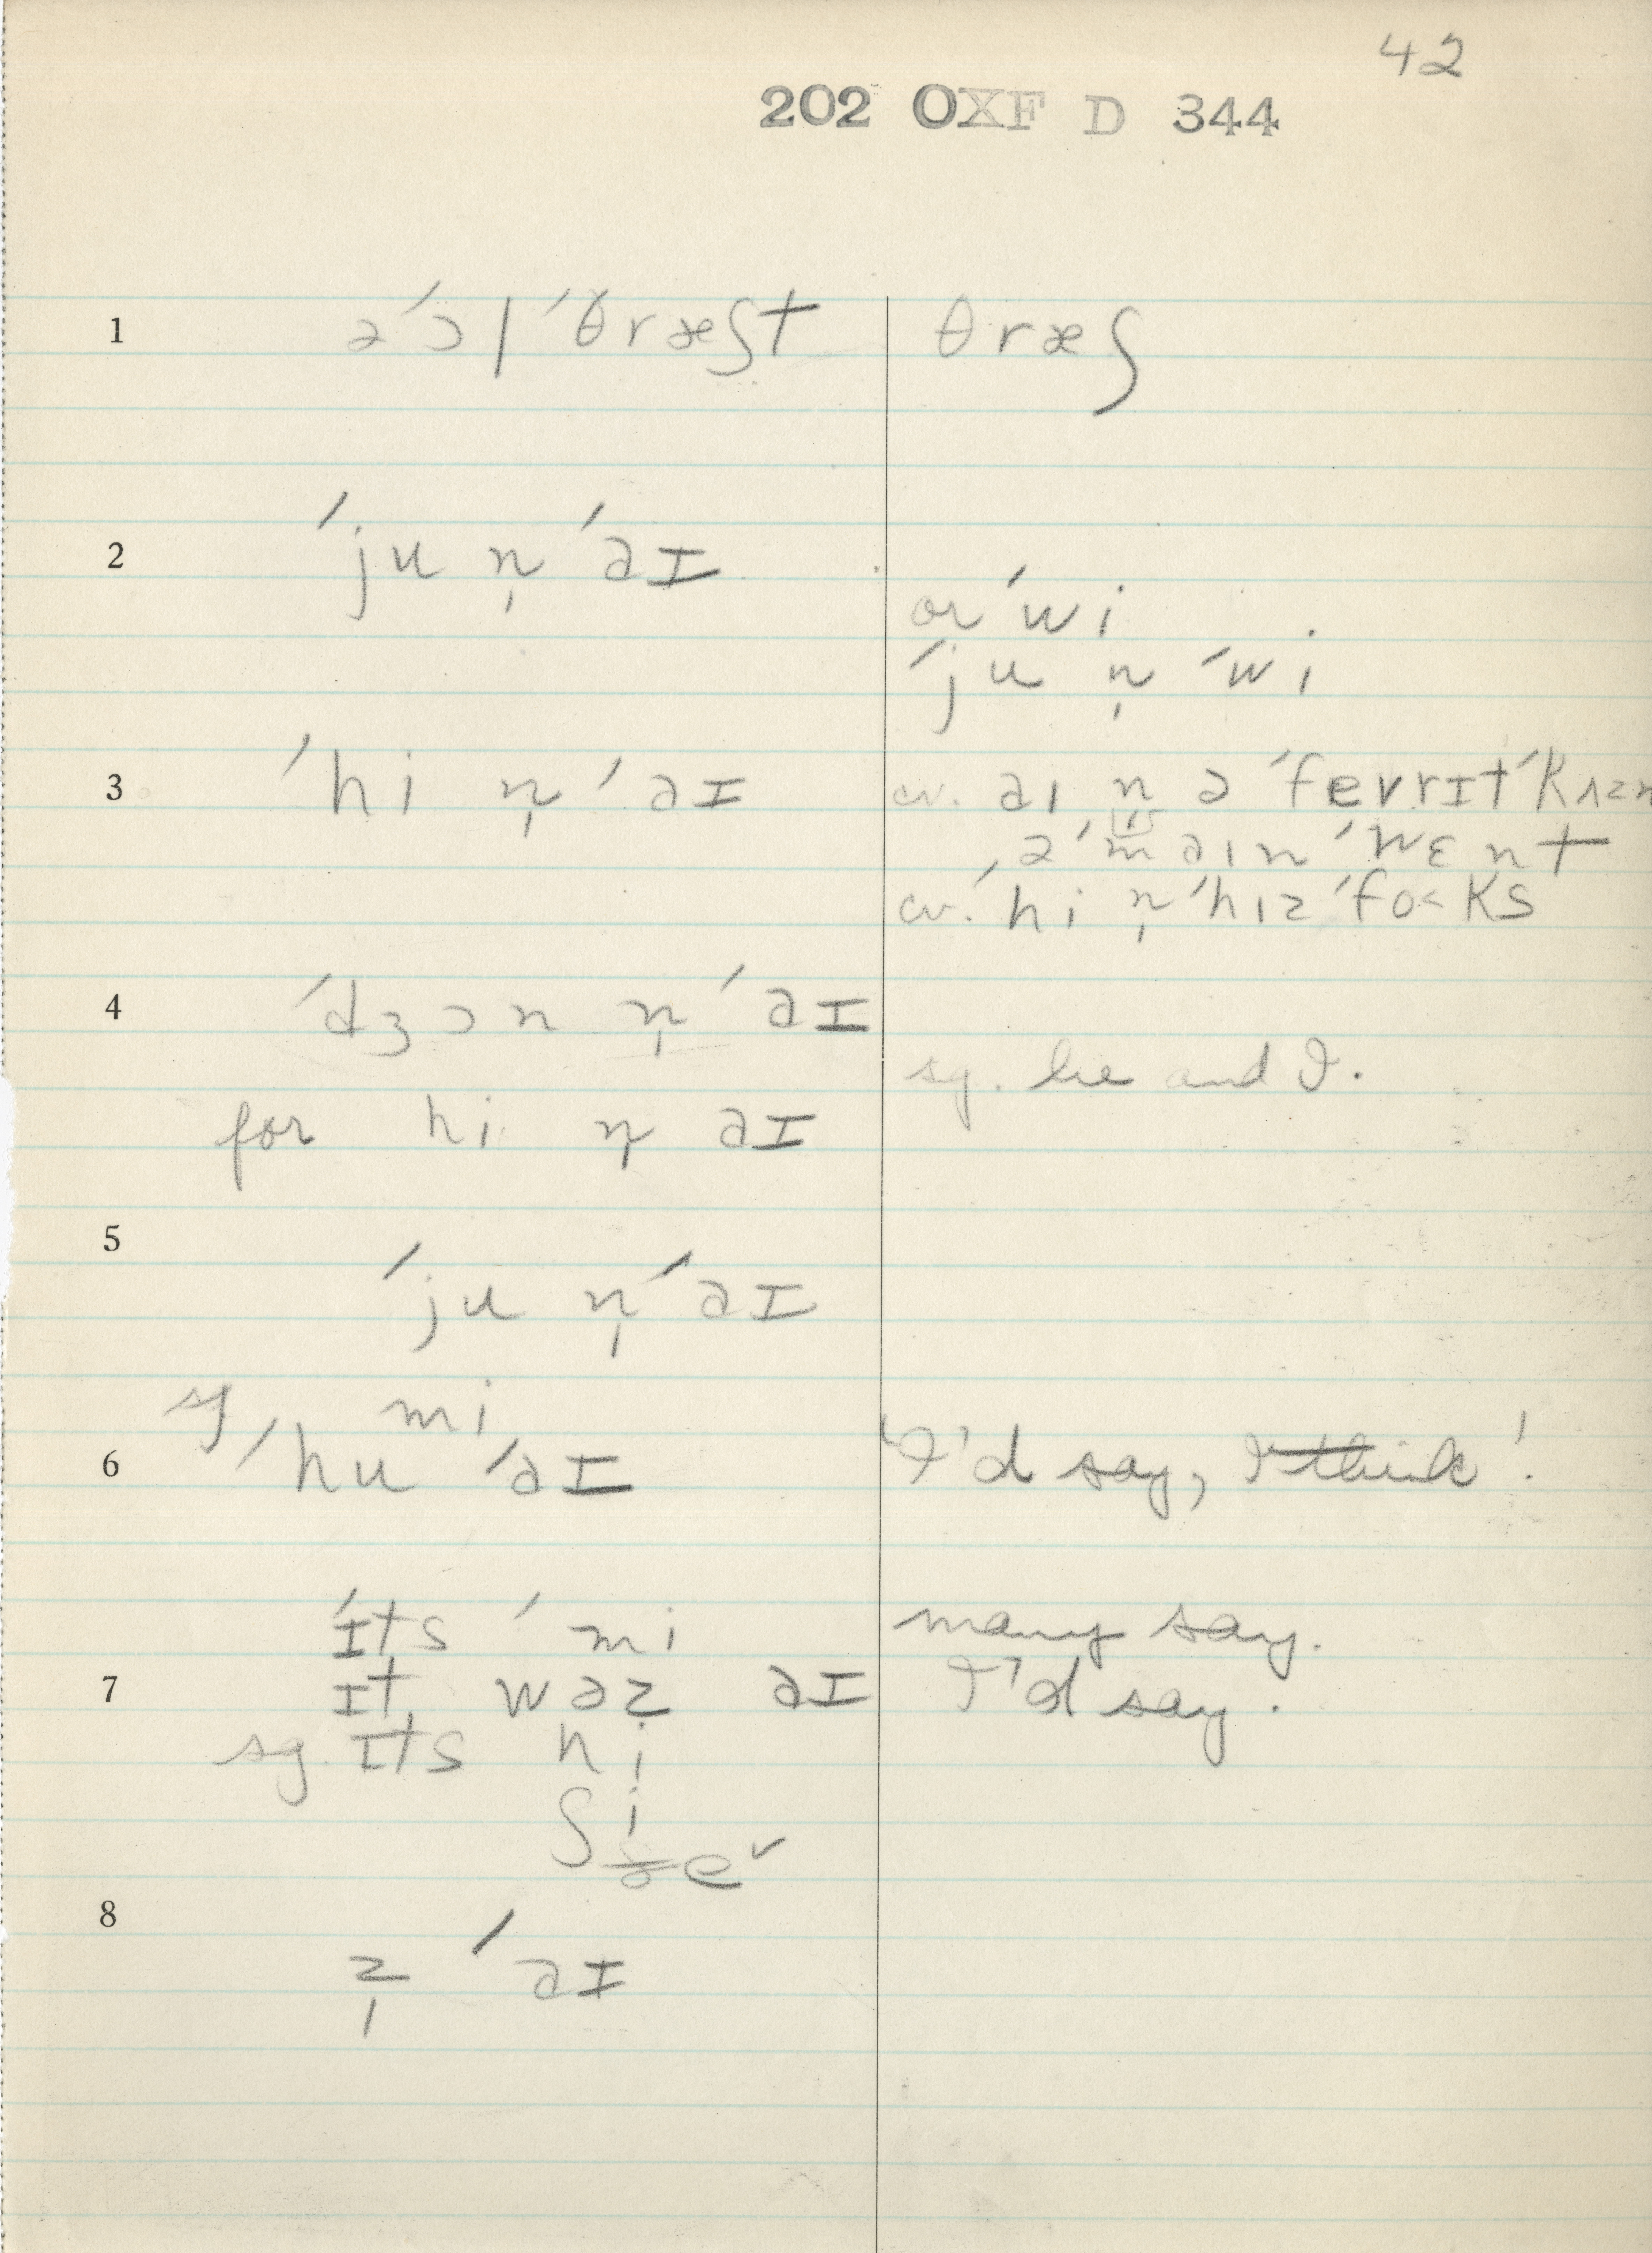 42
202 OXF D 344
1 ə ˈɔl ˈθræʃt θræʃ
2 ˈju n̩ ˈaɪ
or ˈwi
ˈju n̩ ˈwi
3 ˈhi n̩ ˈaɪ cv. aɪ n̩ ə ˈfevrɪt ˈkʌzn
ə ˈmaɪn ˈwɛnt
cv. ˈhi n̩ ˈhɪz ˈfo˂ks
4 ˈdʒɔn n̩ ˈaɪ
sg. he and I.
for hi n̩ aɪ
5
ˈju n̩ ˈaɪ
sg mi
6 ˈhu ˈaɪ 'I'd say, I think'.
ˈɪts ˈmi many say.
7 ɪt wəz aɪ I'd say.
sg. ɪts hi
ʃi
ðe˅
8
z̩ ˈaɪ